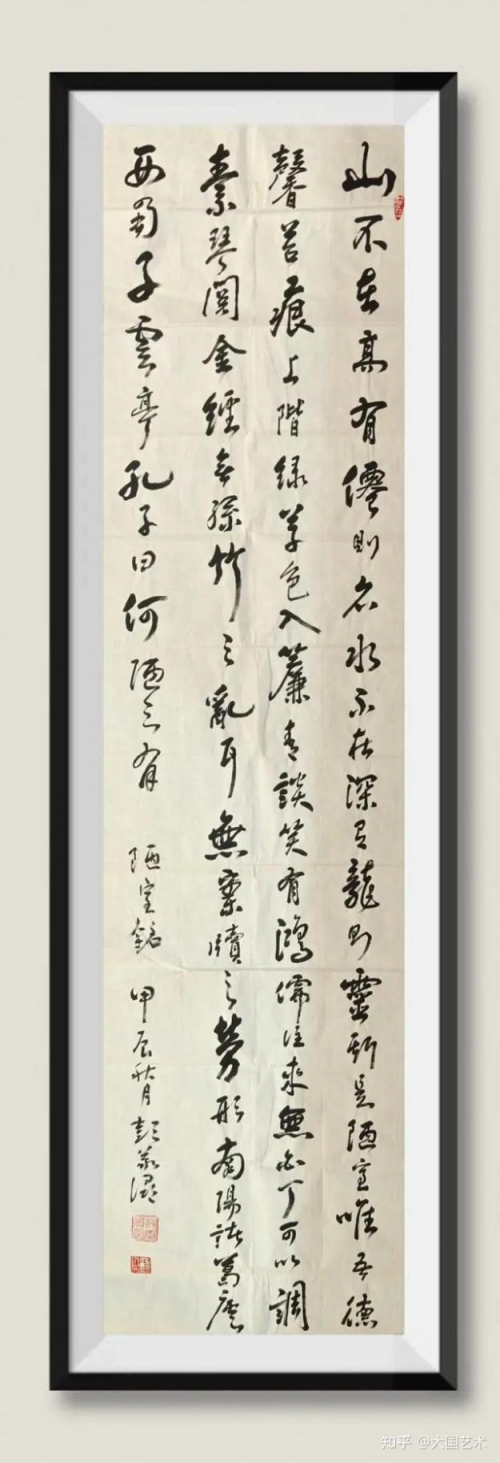 山不在高有僊則名水不在深有龍則靈斯是陋室唯吾德
馨苔痕上階緑草色入簾青談笑有鴻儒往來無白丁可以調
素琴閱金經無絲竹之亂耳無案牘之勞形南陽諸葛廬
西蜀子雲亭孔子曰何陋之有 陋室銘 甲辰秋月 彭
知乎 @大国艺术